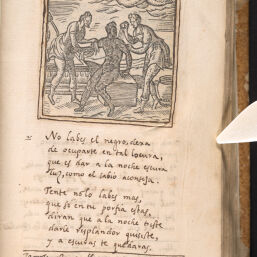 No labes el negro, dexa
de ocuparte en tal locura,
que es dar a la noche escura
luz, como el sabio aconseja.
Tente no lo labes mas,
que si en tu porfia estas,
diran que a la noche triste
darle resplandor quisiste,
y a escuras te quedaras.